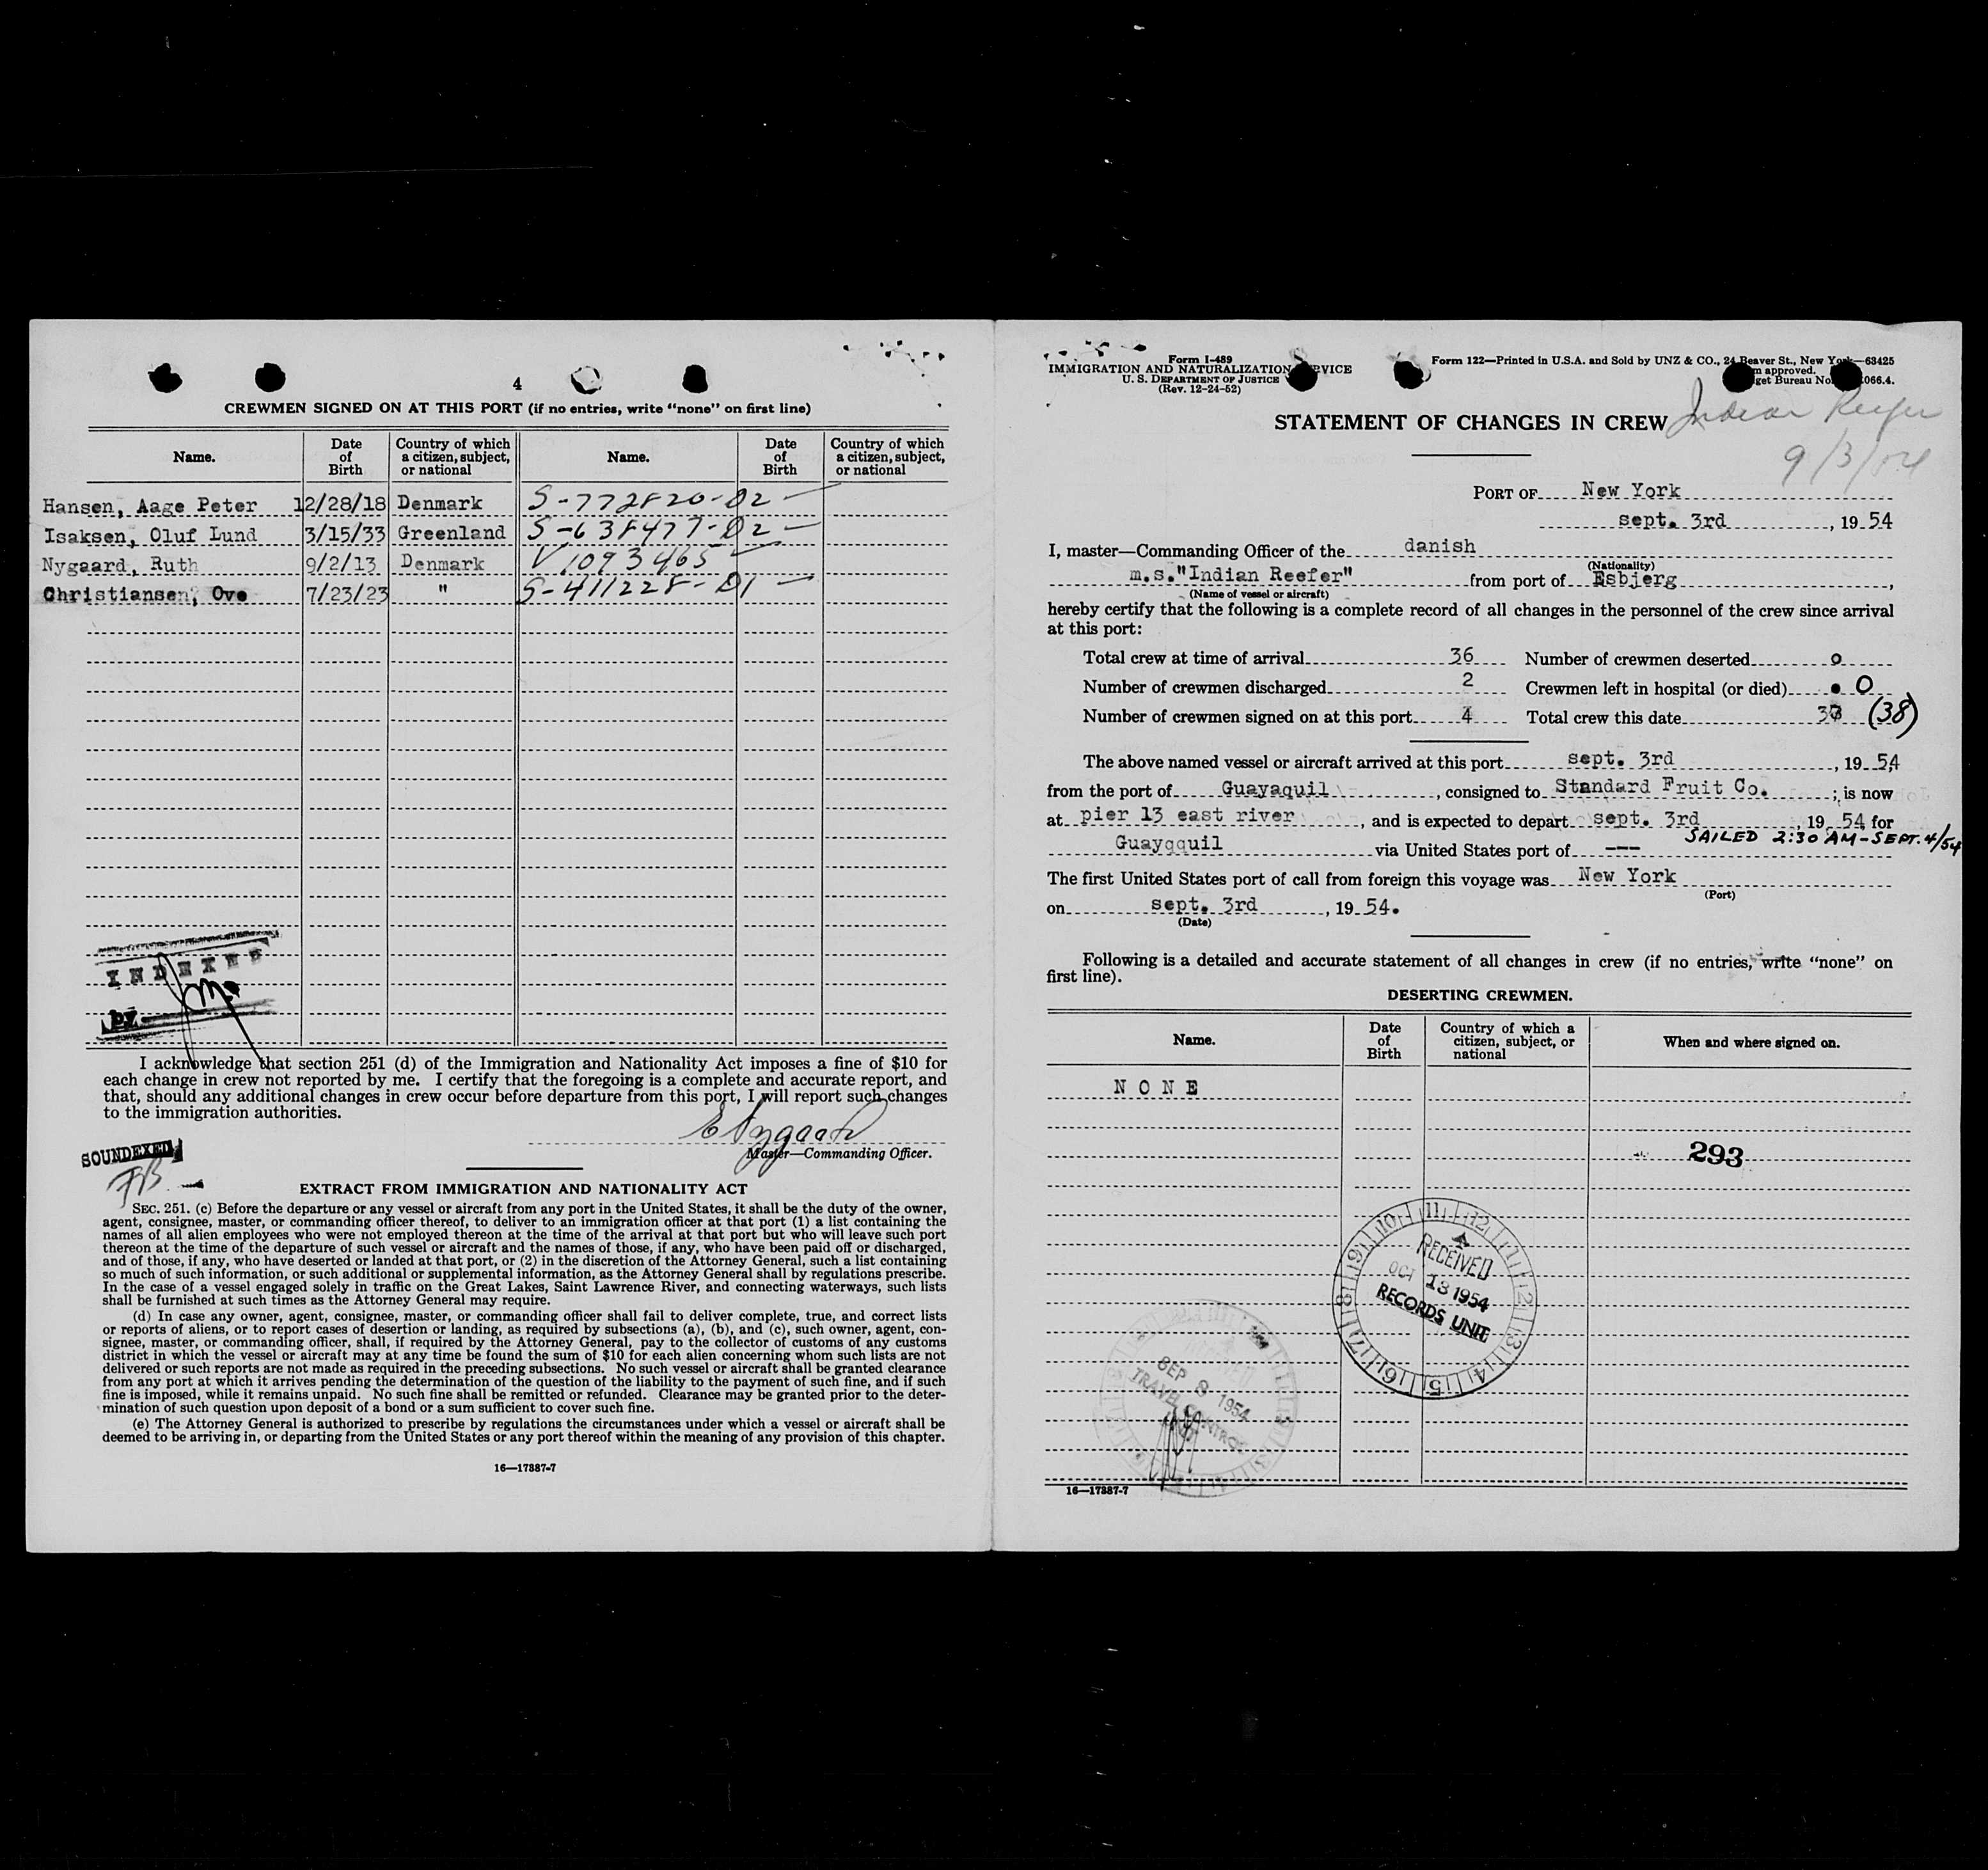 4
CREWMEN SIGNED ON AT THIS PORT (if no entries, write “none” on first line)
Name. Date of Birth Country of which a citizen, subject, or national Name. Date of Birth Country of which a citizen, subject, or national
Hansen, Aage Peter 12/28/18 Denmark S-772820-D2
Isaksen, Oluf Lund 3/15/33 Greenland S-638477-D2
Nygaard, Ruth 9/2/13 Denmark V 1093465
Christiansen, Ove 7/23/23 " S-411228-D1
INDEXED
by
I acknowledge that section 251 (d) of the Immigration and Nationality Act imposes a fine of $10 for
each change in crew not reported by me. I certify that the foregoing is a complete and accurate report, and
that, should any additional changes in crew occur before departure from this port, I will report such changes
to the immigration authorities.
E Nygaard
Master—Commanding Officer.
SOUNDEXED
FB
EXTRACT FROM IMMIGRATION AND NATIONALITY ACT
SEC. 251. (c) Before the departure or any vessel or aircraft from any port in the United States, it shall be the duty of the owner,
agent, consignee, master, or commanding officer thereof, to deliver to an immigration officer at that port (1) a list containing the
names of all alien employees who were not employed thereon at the time of the arrival at that port but who will leave such port
thereon at the time of the departure of such vessel or aircraft and the names of those, if any, who have been paid off or discharged,
and of those, if any, who have deserted or landed at that port, or (2) in the discretion of the Attorney General, such a list containing
so much of such information, or such additional or supplemental information, as the Attorney General shall by regulations prescribe.
In the case of a vessel engaged solely in traffic on the Great Lakes, Saint Lawrence River, and connecting waterways, such lists
shall be furnished at such times as the Attorney General may require.
(d) In case any owner, agent, consignee, master, or commanding officer shall fail to deliver complete, true, and correct lists
or reports of aliens, or to report cases of desertion or landing, as required by subsections (a), (b), and (c), such owner, agent, con-
signee, master, or commanding officer, shall, if required by the Attorney General, pay to the collector of customs of any customs
district in which the vessel or aircraft may at any time be found the sum of $10 for each alien concerning whom such lists are not
delivered or such reports are not made as required in the preceding subsections. No such vessel or aircraft shall be granted clearance
from any port at which it arrives pending the determination of the question of the liability to the payment of such fine, and if such
fine is imposed, while it remains unpaid. No such fine shall be remitted or refunded. Clearance may be granted prior to the deter-
mination of such question upon deposit of a bond or a sum sufficient to cover such fine.
(e) The Attorney General is authorized to prescribe by regulations the circumstances under which a vessel or aircraft shall be
deemed to be arriving in, or departing from the United States or any port thereof within the meaning of any provision of this chapter.
16—17887-7
Form I-489
IMMIGRATION AND NATURALIZATION SERVICE
U. S. DEPARTMENT OF JUSTICE
(Rev. 12-24-52)
Form 122—Printed in U.S.A. and Sold by UNZ & CO., 24 Beaver St., New York—63425
approved.
get Bureau No. 066.4.
STATEMENT OF CHANGES IN CREW Indian Reefer
9/3/54
PORT OF New York
sept. 3rd, 1954
I, master—Commanding Officer of the danish
(Nationality)
m.s."Indian Reefer" from port of Esbjerg,
(Name of vessel or aircraft)
hereby certify that the following is a complete record of all changes in the personnel of the crew since arrival
at this port:
Total crew at time of arrival 36 Number of crewmen deserted o
Number of crewmen discharged 2 Crewmen left in hospital (or died) 0
Number of crewmen signed on at this port 4 Total crew this date 38 (38)
The above named vessel or aircraft arrived at this port sept. 3rd, 1954
from the port of Guayaquil, consigned to Standard Fruit Co.; is now
at pier 13 east river, and is expected to depart sept. 3rd, 1954 for
SAILED 2:30 AM-SEPT. 4/54
Guayqquil via United States port of ---
The first United States port of call from foreign this voyage was New York
(Port)
on sept. 3rd, 1954.
(Date)
Following is a detailed and accurate statement of all changes in crew (if no entries, write “none” on
first line).
DESERTING CREWMEN.
Name. Date of Birth Country of which a citizen, subject, or national When and where signed on.
NONE
293
10 11 12 1 2 3 4 5 6 7 8 9
RECEIVED
OCT 18 1954
RECORDS UNIT
SEP 8 1954
TRAVEL CONTROL
16—17887-7